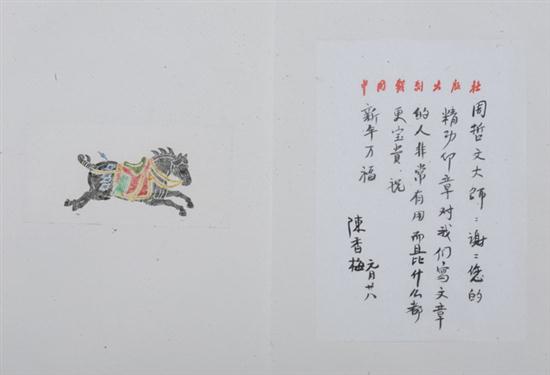 中国戏剧出版社
周哲文大师：谢谢您的
精功印章对我们写文章
的人非常有用而且比什么都
更宝贵．祝
新年万福
陳香梅
元月廿八